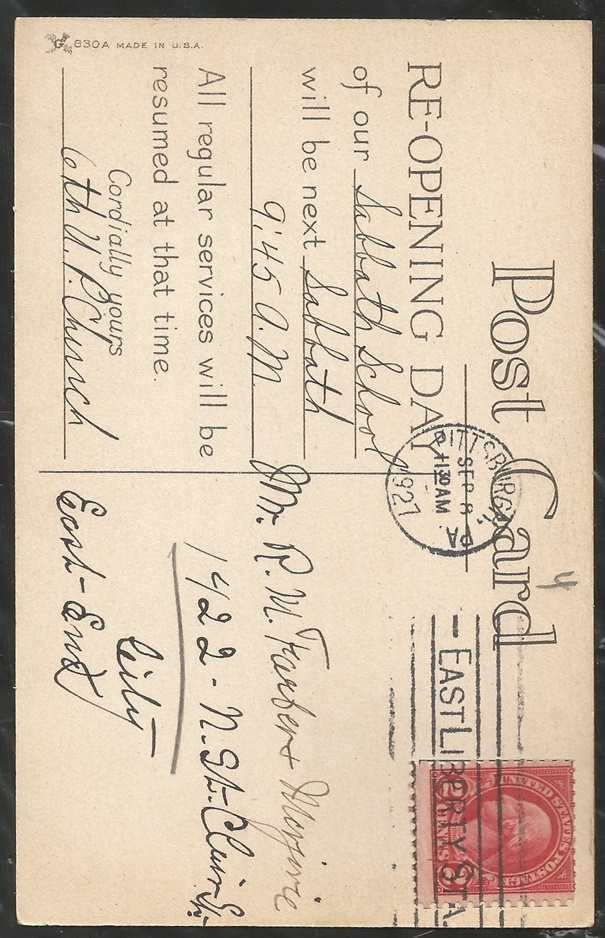 Post Card
RE-OPENING DAY
of our Sabbath School
will be next Sabbath
9:45 A.M.
All regular services will be
resumed at that time.
Cordially yours
6th U.P. Church
G 830A MADE IN U.S.A.
PITTSBURGH, PA
SEP 8
11 30 AM
1927
EAST LIBERTY STA.
UNITED STATES POSTAGE
2 CENTS 2
4
Mr. R. M. Forbes
1422 - N. St. Clair St.
City
East-End